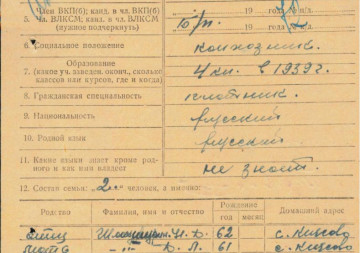 Член ВКП(б); канд. в чл. ВКП(б)
5. Чл. ВЛКСМ; канд. в чл. ВЛКСМ
(нужное подчеркнуть)
19
п/д.
19
п/д.
6. Социальное положение колхозник.
Образование
7. (какие уч. заведен. окончил, сколько
классов или курсов, где и когда)
4 кл. в 1939 г.
8. Гражданская специальность плотник.
9. Национальность русский
10. Родной язык русский
11. Какие языки знает кроме родно-
го и как ими владеет не знает.
12. Состав семьи: 2 человек, а именно:
Родство Фамилия, имя и отчество Рождение Домашний адрес
год месяц
отец И. Д. 62 с.
мать Д. Л. 61 с.